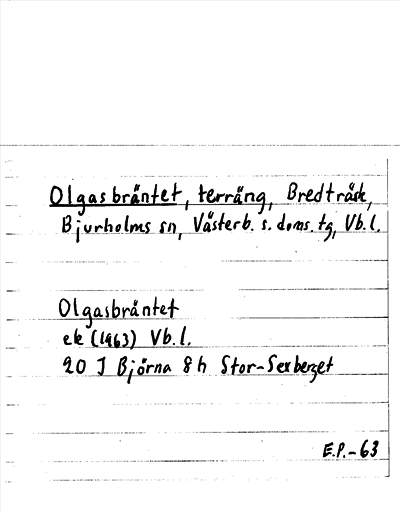 Olgasbräntet, terräng, Bredträsk,
Bjurholms sn, Västerb. s. doms. tg, Vb.l.
Olgasbräntet
ek (1963) Vb.l.
20 J Björna 8 h Stor-Sexberget
E.P.-63